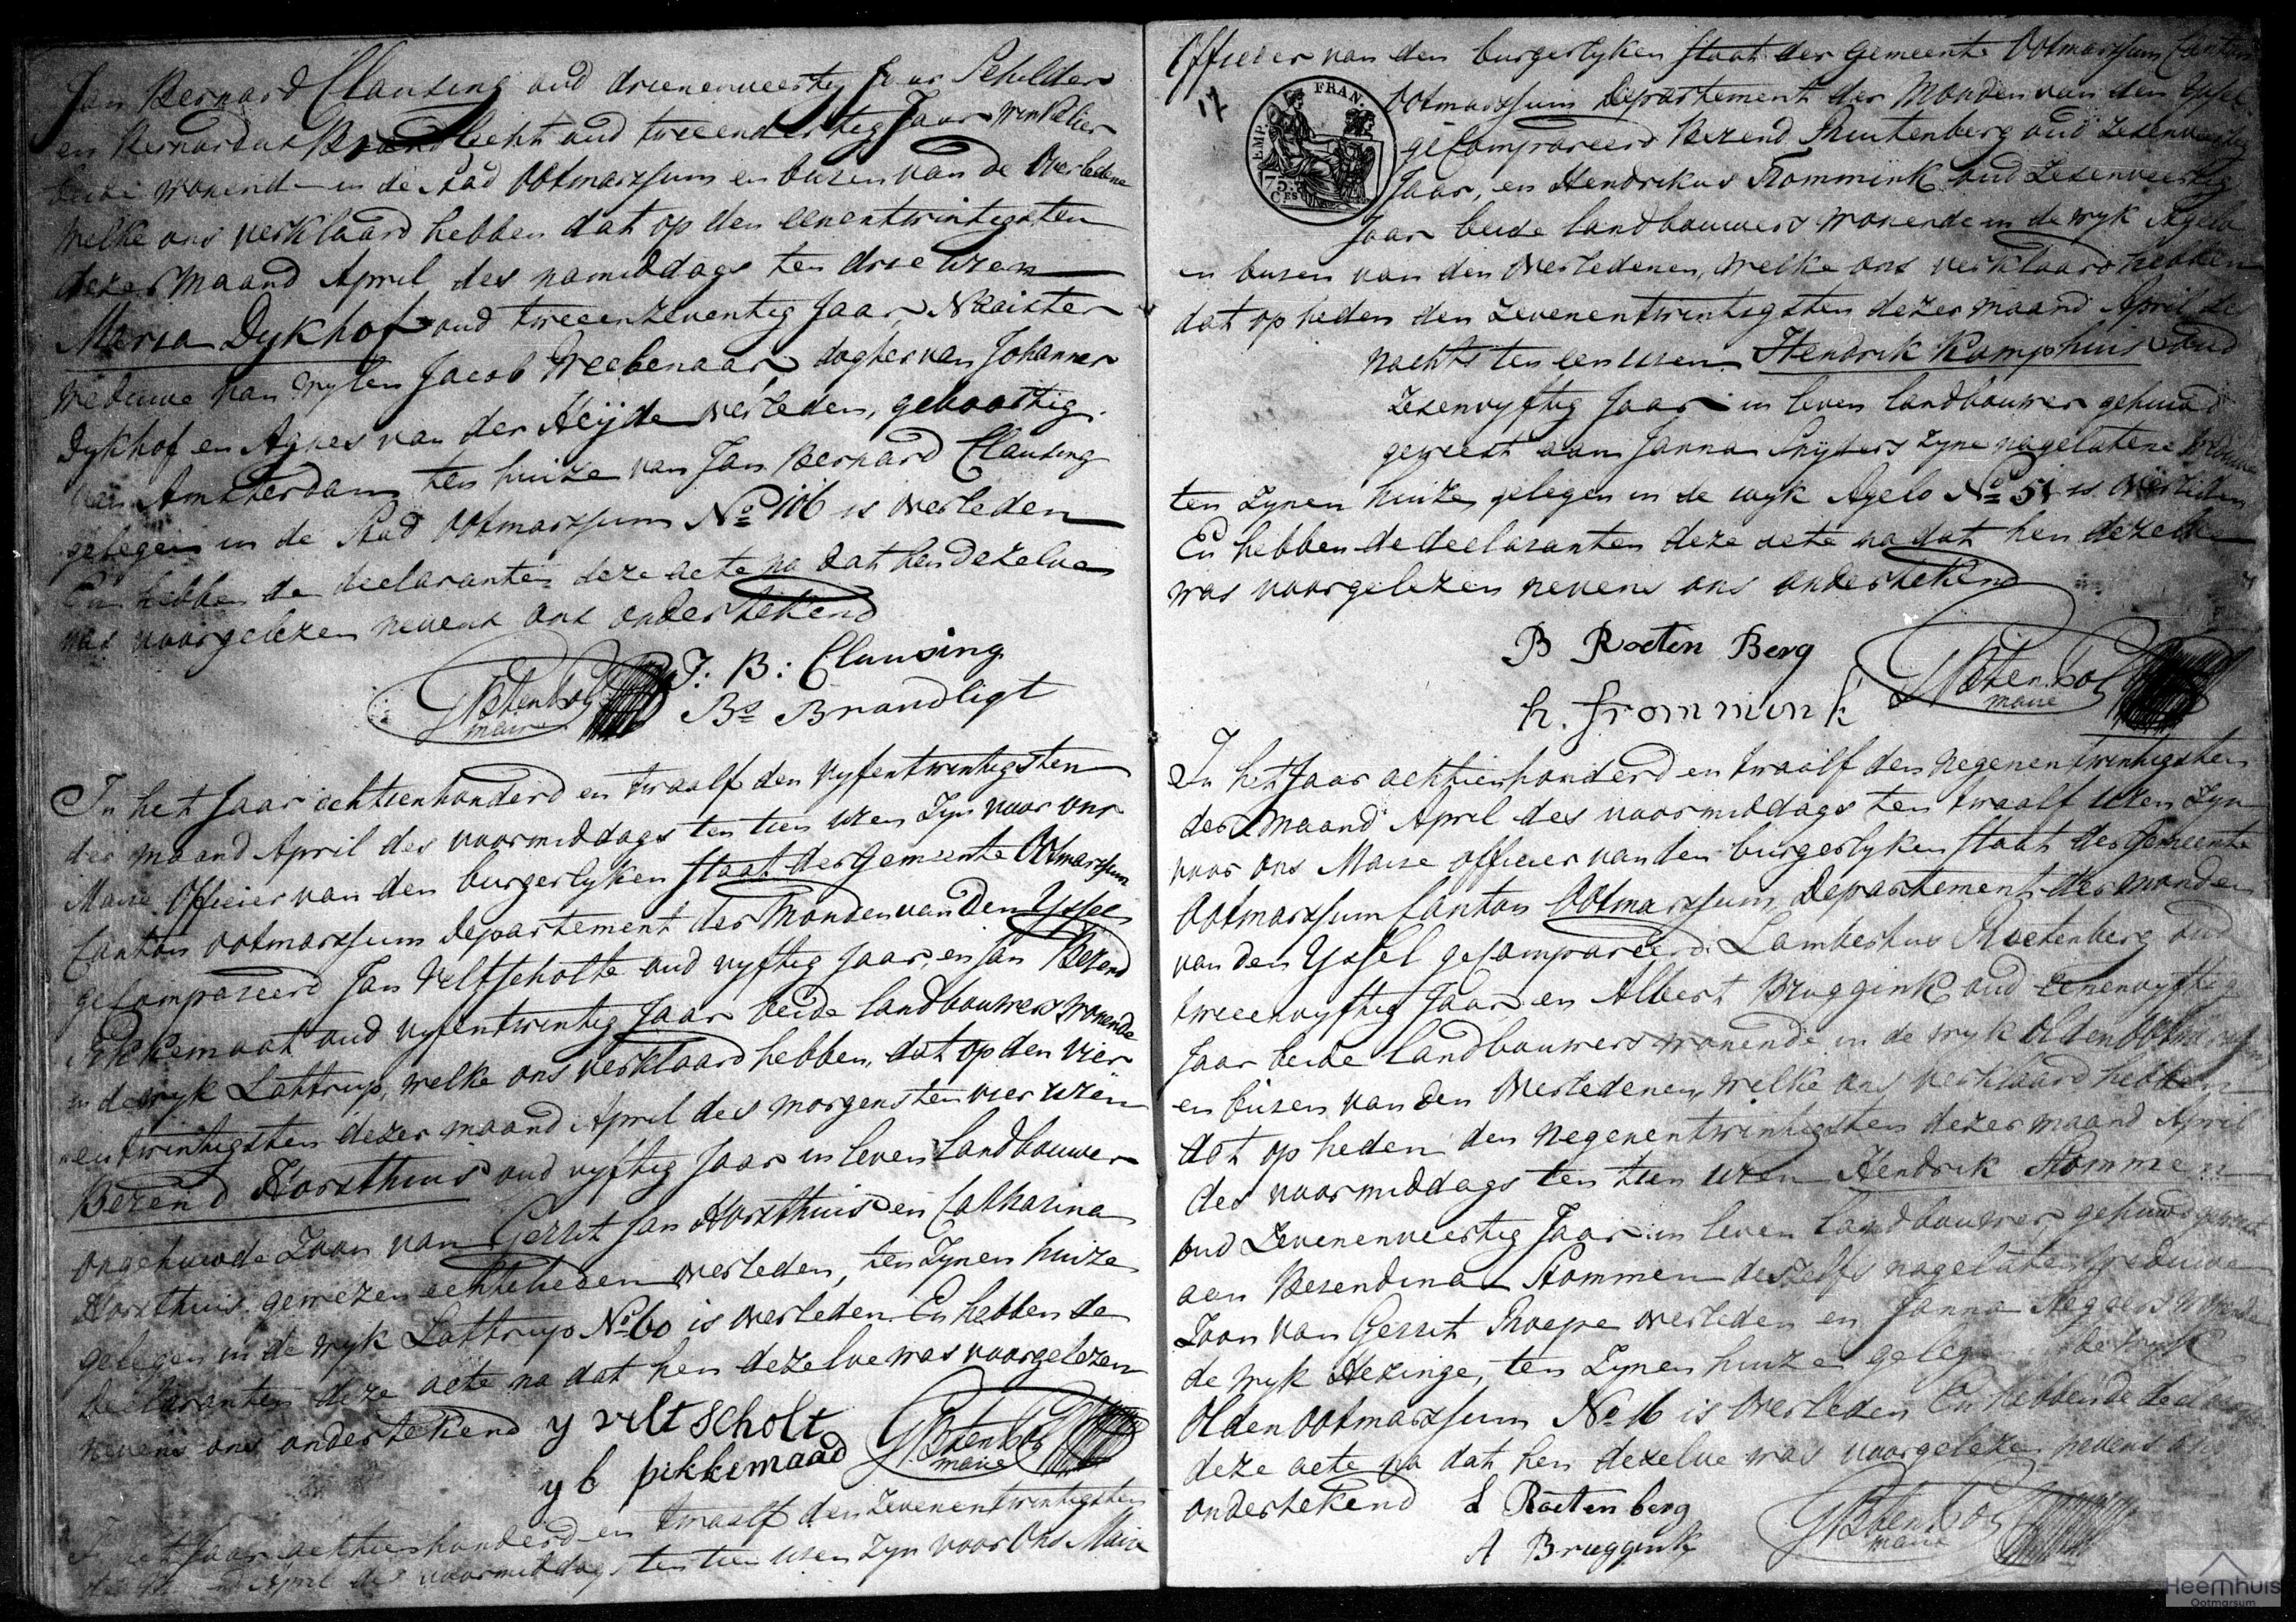 Jan Bernard Clausing oud drieenenveertig Jaar Schilder
en Bernardus Brandlecht oud tweeendertig Jaar Winkelier
beide wonende in de Stad Ootmarssum en buren van de Overledene
Welke ons verklaard hebben dat op den eenentwintigsten
dezer Maand April des namiddags ten drie uren
Maria Dykhof oud tweeenzeventig Jaar, Naaister
Weduwe van wylen Jacob Weebenaar, dogter van Johannes
Dykhof en Agnes van der Heijde overleden, geboortig
van Amsterdam ten huize van Jan Bernard Clausing
gelegen in de Stad Ootmarssum No 106 is overleden
En hebben de declaranten deze acte na dat hen dezelve
was voorgelezen nevens ons ondertekend
J: B: Clausing
Bs Brandligt
maire
In het Jaar achtienhonderd en twaalf den vyfentwintigsten
der maand April des voormiddags ten tien uren Zyn voor ons
Maire Officier van den burgerlyken Staat der Gemeente Ootmarssum
Canton Ootmarssum Departement der Monden van den Yssel
gecompareerd Jan Veltscholte oud vyftig Jaar, en Jan Berend
Pikkemaat oud vyfentwintig Jaar beide landbouwers wonende
in de wyk Lattrup, welke ons verklaard hebben, dat op den vier
entwintigsten dezer maand April des morgens ten vier uren
Berend Horsthuis oud vyftig Jaar in leven Landbouwer
ongehuwde Zoon van Gerrit Jan Horsthuis en Catharina
Horsthuis gewezen echtelieden overleden, ten Zynen huize
gelegen in de wyk Lattrup No 60 is overleden. En hebben de
declaranten deze acte na dat hen dezelve was voorgelezen
nevens ons ondertekend
y veltscholt
y b pikkemaad
maire
In het Jaar achtienhonderd en twaalf den Zevenentwintigsten
der maand April des voormiddags ten tien uren Zyn voor Ons Maire
Officier van den burgerlyken Staat der Gemeente Ootmarssum Canton
17
EMP. FRAN.
75
CES
Ootmarssum Departement der Monden van den Yssel
gecompareerd Berend Ruitenberg oud Zesenveertig
Jaar, en Hendrikus Frommink oud Zesenveertig
Jaar beide landbouwers wonende in de wyk Agelo
en buren van den Overledenen, welke ons verklaard hebben
dat op heden den Zevenentwintigsten dezer maand April des
nachts ten een uren Hendrik Kamphuis oud
Zesenvyftig Jaar in leven landbouwer gehuwd
geweest aan Janna Snijders Zyne nagelatene Weduwe
ten Zynen huize gelegen in de wyk Agelo No 51 is overleden
En hebben de declaranten deze acte na dat hen dezelve
was voorgelezen nevens ons ondertekend
B Roeten Berg
h. frommink
maire
In het Jaar achtienhonderd en twaalf den Negenentwintigsten
der Maand April des voormiddags ten twaalf uren Zyn
voor ons Maire officier van den burgerlyken Staat der Gemeente
Ootmarssum Canton Ootmarssum, Departement der Monden
van den Yssel gecompareerd Lambertus Roetenberg oud
tweeenvyftig Jaar en Albert Bruggink oud eenenvyftig
Jaar beide Landbouwers wonende in de wyk Olden Ootmarssum
en buren van den Overledenen, welke ons verklaard hebben
dat op heden den Negenentwintigsten dezer maand April
des voormiddags ten tien uren Hendrik Stommen
oud Zevenenveertig Jaar in leven Landbouwer, gehuwd geweest
aan Berendina Stommen deszelfs nagelaten Weduwe
Zoon van Gerrit overleden en Janna wonende
de wyk Hezinge, ten Zynen huize gelegen in de wyk
Olden Ootmarssum No 16 is overleden En hebben de declaranten
deze acte na dat hen dezelve was voorgelezen nevens ons
ondertekend
L Roetenberg
A Bruggink
maire
Heemhuis
Ootmarsum